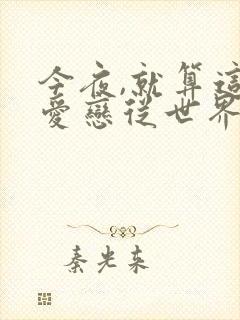 今夜,就算這
愛戀從世界
秦光來